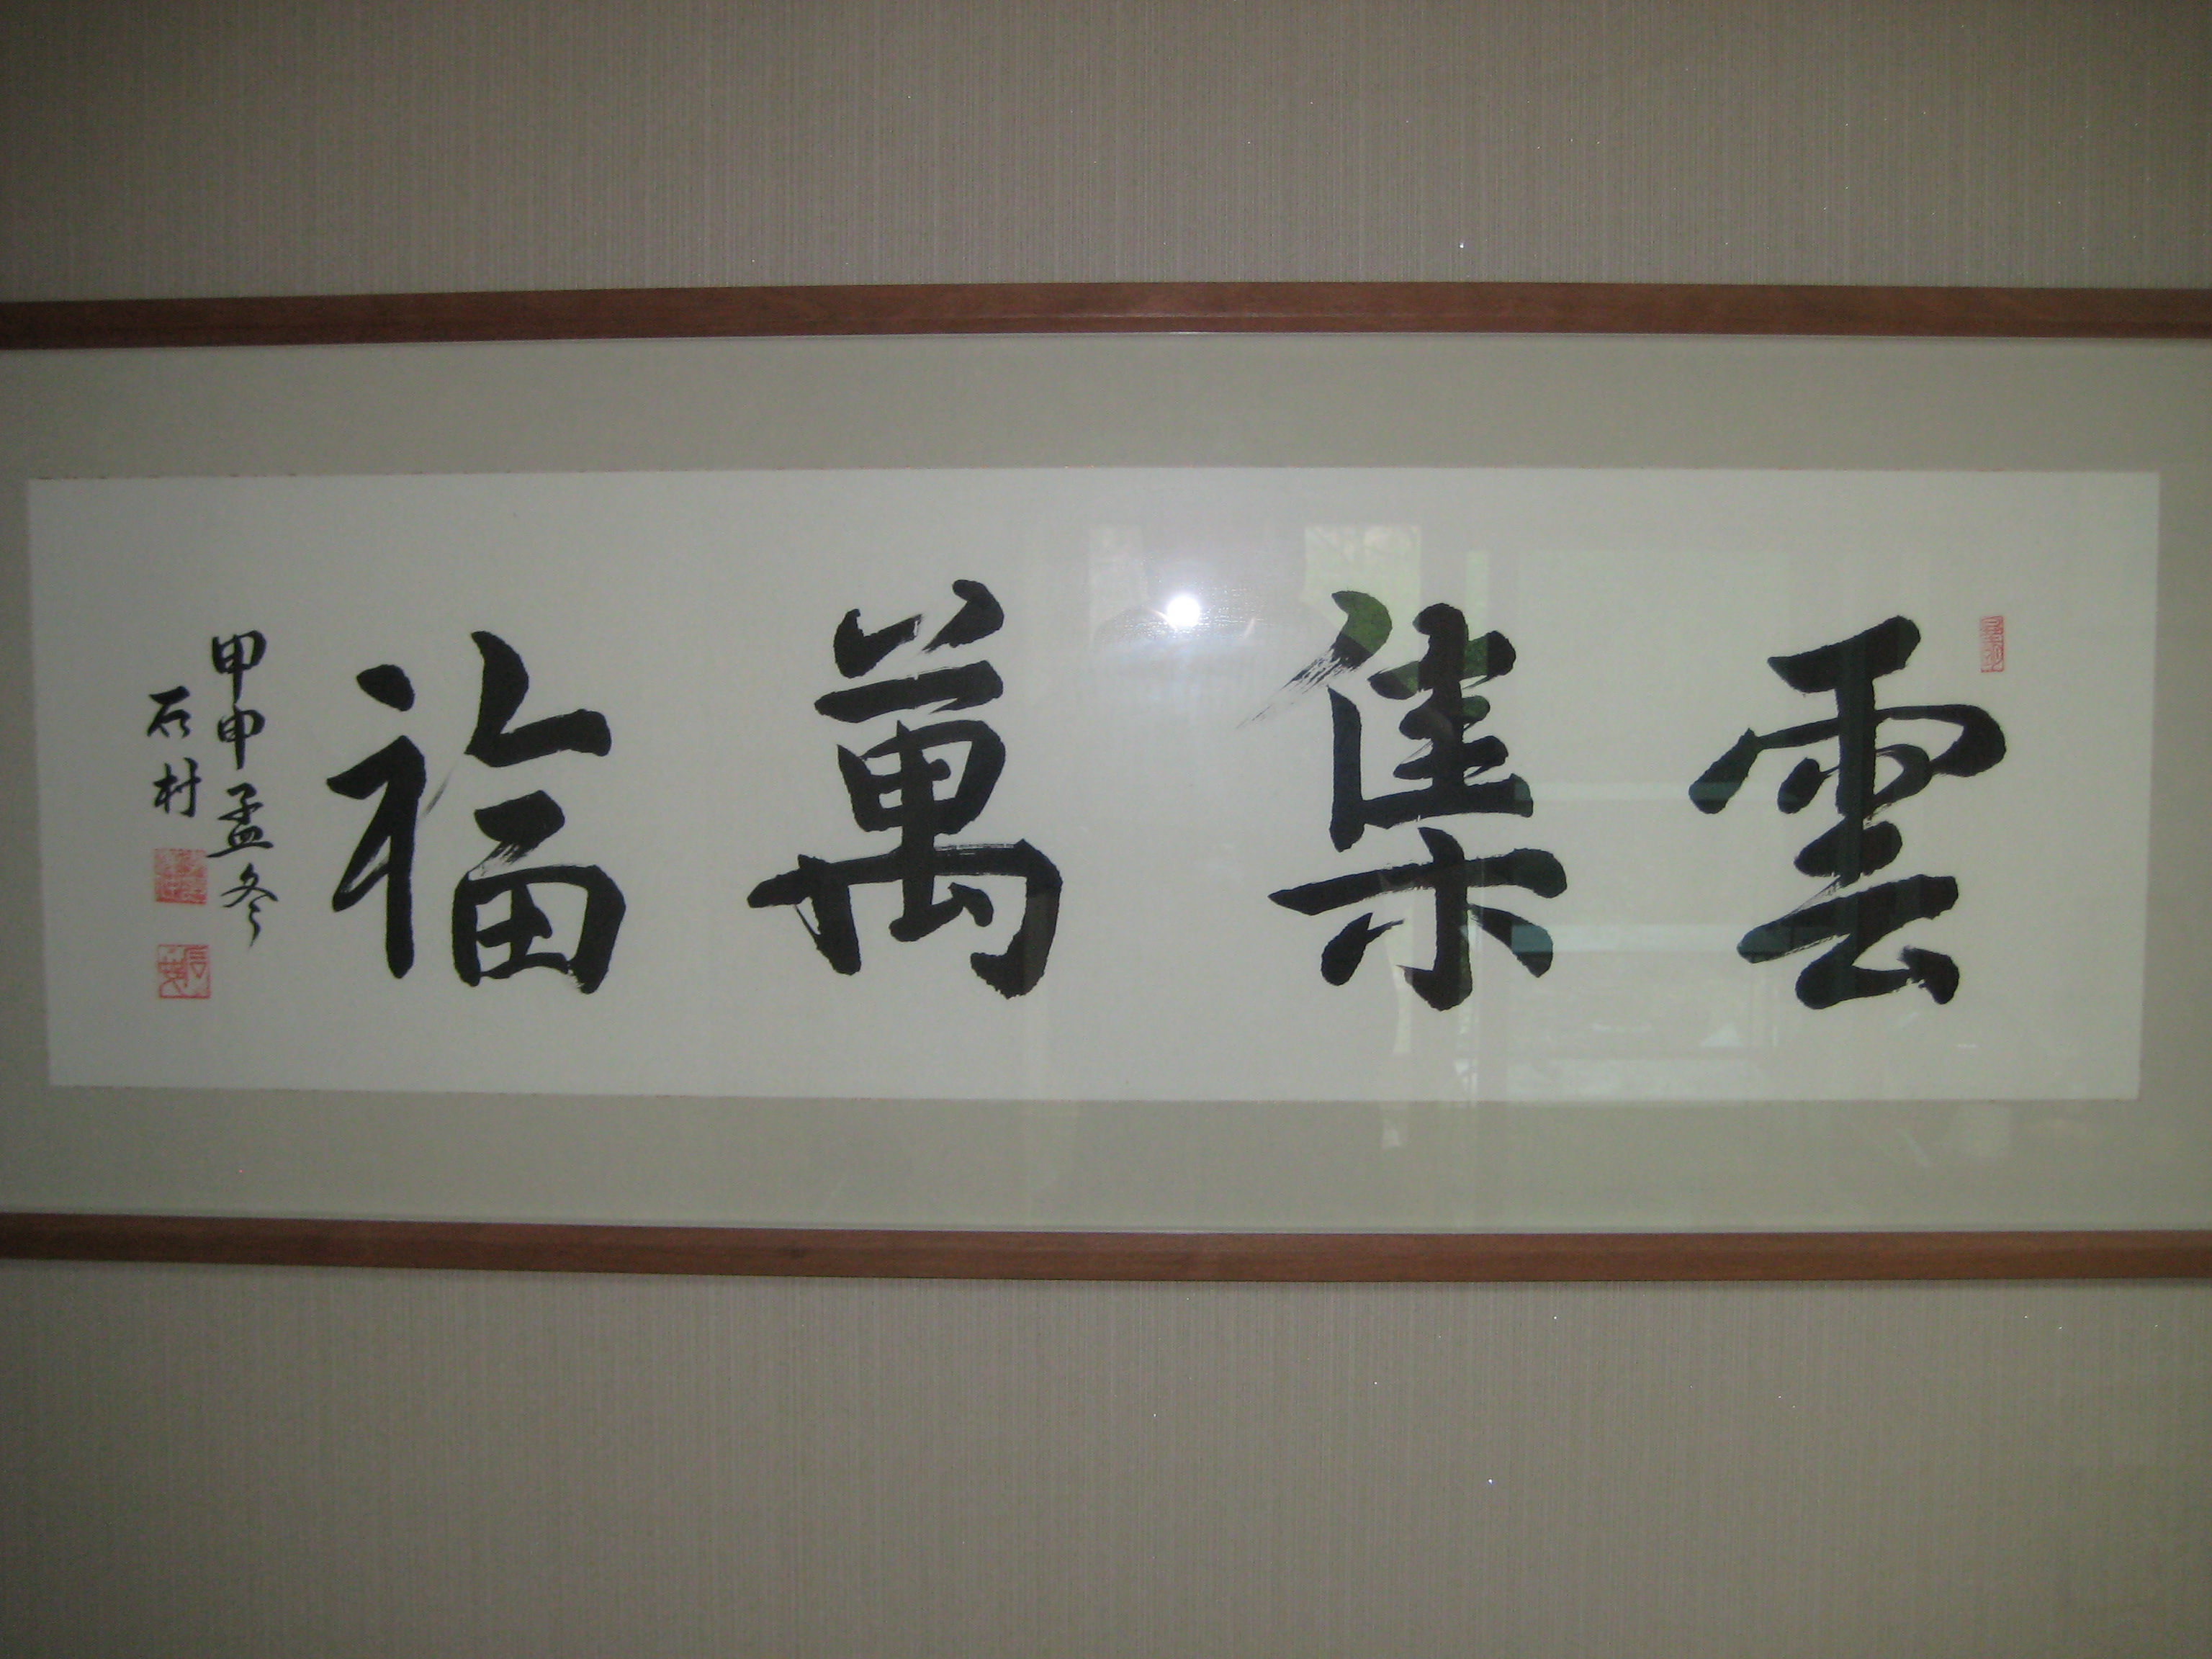 雲集萬福
甲申孟冬
石村